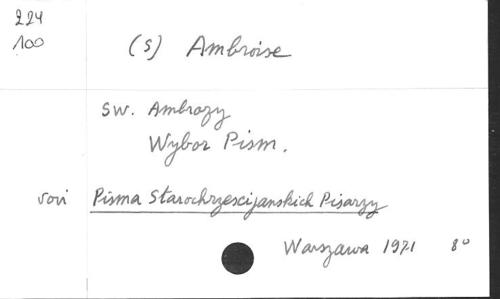 224
100
(S) Ambroise
SW. Ambrozy
Wybor Pism.
voir Pisma Starochrzescijanskich Pisarzy
Warszawa 1971 8º